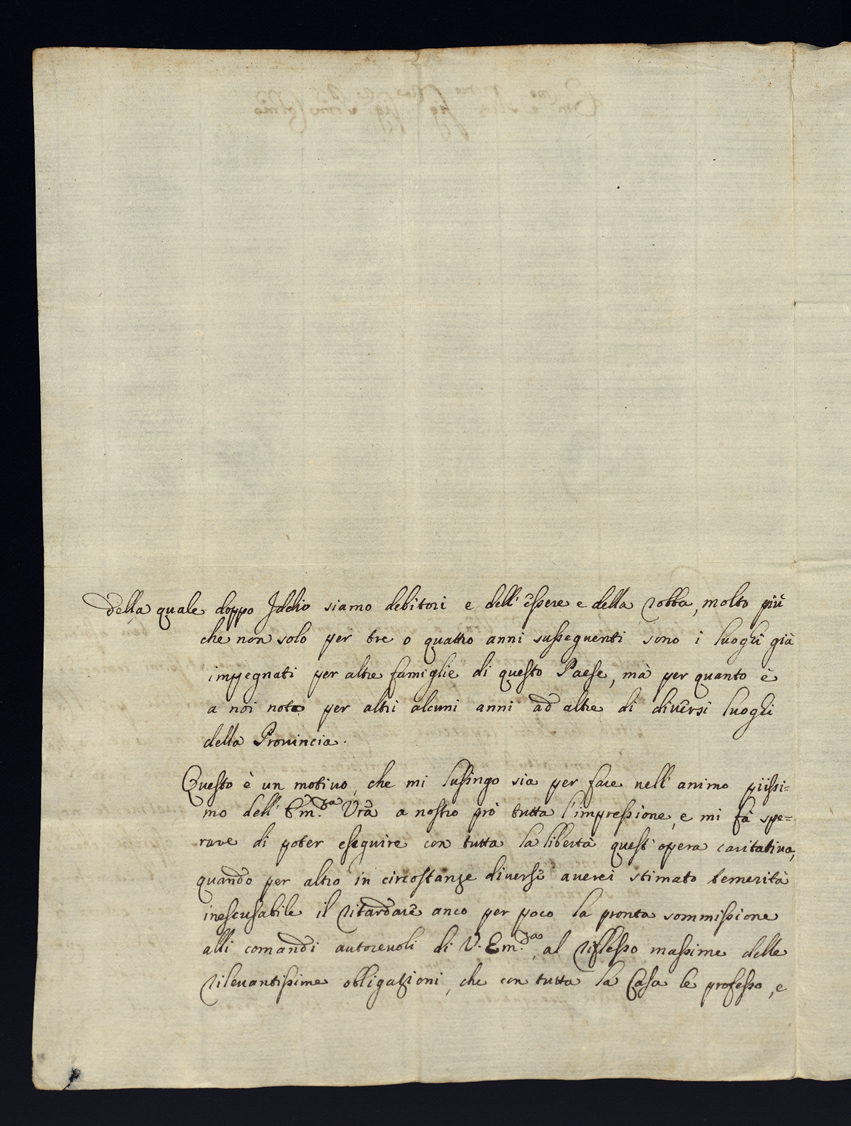 della quale doppo Iddio siamo debitori e dell'essere e della robba, molto più
che non solo per tre o quattro anni susseguenti sono i luoghi già
impegnati per altre famiglie di questo Paese, mà per quanto è
a noi noto per altri alcuni anni ad altre di diversi luoghi
della Prouincia.
Questo è un motiuo, che mi lusingo sia per fare nell'animo piissi=
mo dell'Em.za Vrã a nostro prò tutta l'impressione, e mi fà spe=
rare di poter eseguire con tutta la libertà quest'opera caritatiua,
quando per altro in circostanze diverse auerei stimato temerità
inescusabile il ritardare anco per poco la pronta sommissione
alli comandi autoreuoli di V. Em.za, al riflesso massime delle
rileuantissime obligazioni, che con tutta la Casa le professo, e